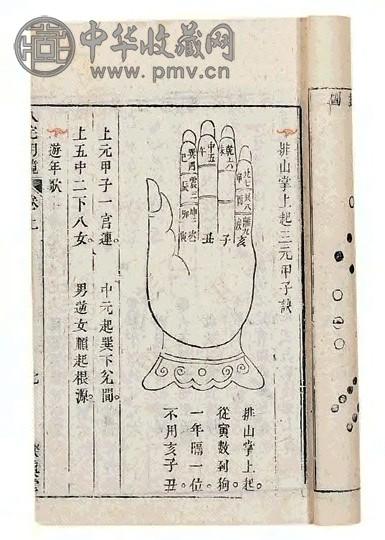 中华收藏网
www.pmv.cn
排山掌上起三元甲子訣
乾六
中五
亥
子
丑
排山掌上起。
從寅數到狗。
一年隔一位。
不用亥子丑。
上元甲子一宮連。 中元起巽下兌間。
上五中二下八女。 男逆女順起根源。
遊年歌
八宅明鏡 卷上 七
圖